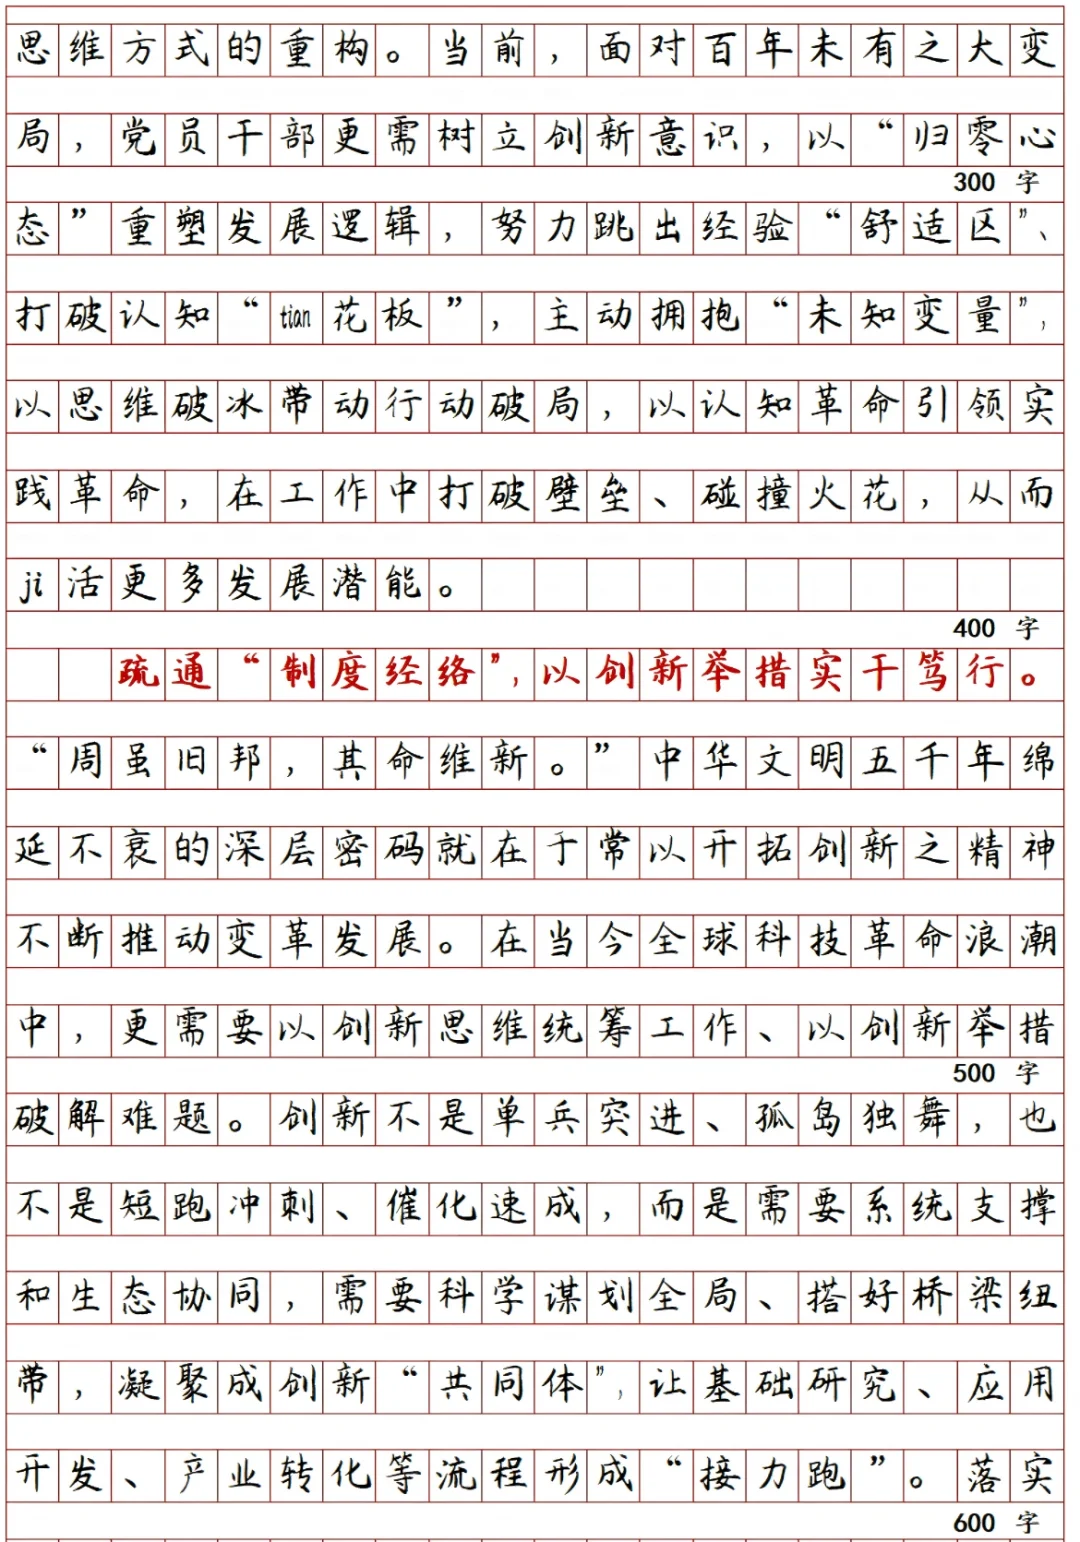 思维方式的重构。当前，面对百年未有之大变
局，党员干部更需树立创新意识，以“归零心
300 字
态”重塑发展逻辑，努力跳出经验“舒适区”、
打破认知“tian花板”，主动拥抱“未知变量”，
以思维破冰带动行动破局，以认知革命引领实
践革命，在工作中打破壁垒、碰撞火花，从而
ji活更多发展潜能。
400 字
疏通“制度经络”，以创新举措实干笃行。
“周虽旧邦，其命维新。”中华文明五千年绵
延不衰的深层密码就在于常以开拓创新之精神
不断推动变革发展。在当今全球科技革命浪潮
中，更需要以创新思维统筹工作、以创新举措
500 字
破解难题。创新不是单兵突进、孤岛独舞，也
不是短跑冲刺、催化速成，而是需要系统支撑
和生态协同，需要科学谋划全局、搭好桥梁纽
带，凝聚成创新“共同体”，让基础研究、应用
开发、产业转化等流程形成“接力跑”。落实
600 字